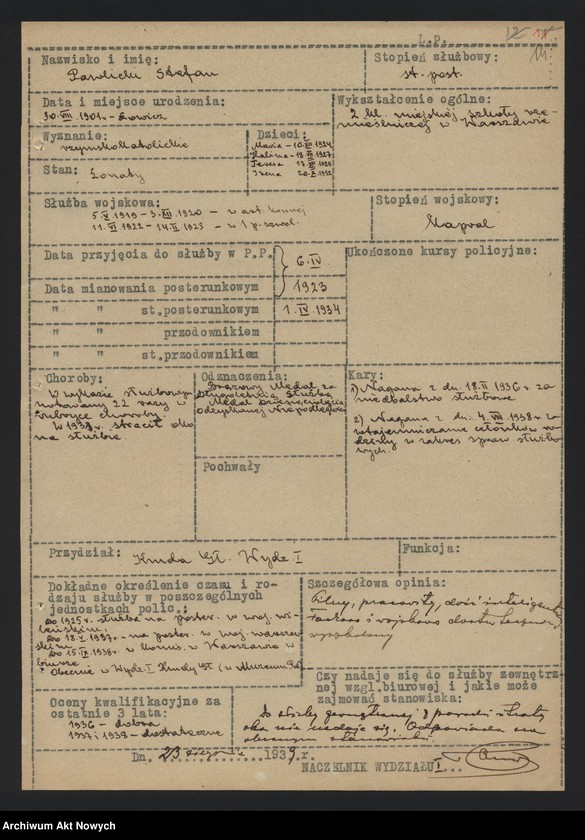 L.P.
11
Nazwisko i imię:
Pawlicki Stefan
Stopień służbowy:
st. post.
Data i miejsce urodzenia:
30.VIII.1901 - Łowicz
Wykształcenie ogólne:
2 kl. miejskiej szkoły rze-
mieślniczej w Warszawie
Wyznanie:
rzymskokatolickie
Dzieci:
Maria - 10.
Halina - 18.
Teresa - 17.
Irena 20.
Stan: żonaty
Służba wojskowa:
5.V.1919 - 3.XII.1920 - w art. konnej
11.VI.1922 - 14.II.1923 - w 1 p. szwol.
Stopień wojskowy:
Kapral
Data przyjęcia do służby w P.P.
6.IV
Ukończone kursy policyjne:
Data mianowania posterunkowym
1923
" " st.posterunkowym
1.IV.1934
" " przodownikiem
" " st.przodownikiem
Choroby:
W wykazie służbowym
notowany 22 razy w
rubryce choroby.
W 1937 r. stracił oko
na służbie.
Odznaczenia:
Brązowy Medal za
Długoletnią Służbę
Medal Dziesięciolecia
Odzyskanej Niepodległości
Kary:
1) Nagana z dn. 18.II 1936 r za
niedbalstwo służbowe
2) Nagana z dn. 4.VIII.1938 r za
wtajemniczanie członków ro-
dziny w zakres spraw służbo-
wych.
Pochwały
Przydział: Kmda Gł. Wydz I
Funkcja:
Dokładne określenie czasu i ro-
dzaju służby w poszczególnych
jednostkach polic.:
Do 1925 r. służba na poster. w woj. wi-
leńskim.
Do 18.V.1937. - na poster. w woj. warszaw-
skim.
Do 15.IX.1938 r. w Komis. w Warszawie w
biurze.
Obecnie w Wydz. I Kmdy Gł (w Muzeum
Szczegółowa opinia:
Pilny, pracowity, dość inteligentny
Fachowo i wojskowo dostatecznie
wyszkolony
Czy nadaje się do służby zewnętrz-
nej wzgl.biurowej i jakie może
zajmować stanowiska:
Do służby zewnętrznej z powodu straty
oka nie nadaje się. Odpowiada na
obecnym stanowisku.
Oceny kwalifikacyjne za
ostatnie 3 lata:
1936 - dobra
1937 i 1938 - dostateczne
Dn. 23 sierpnia 1939.r.
NACZELNIK WYDZIAŁU I...
Archiwum Akt Nowych